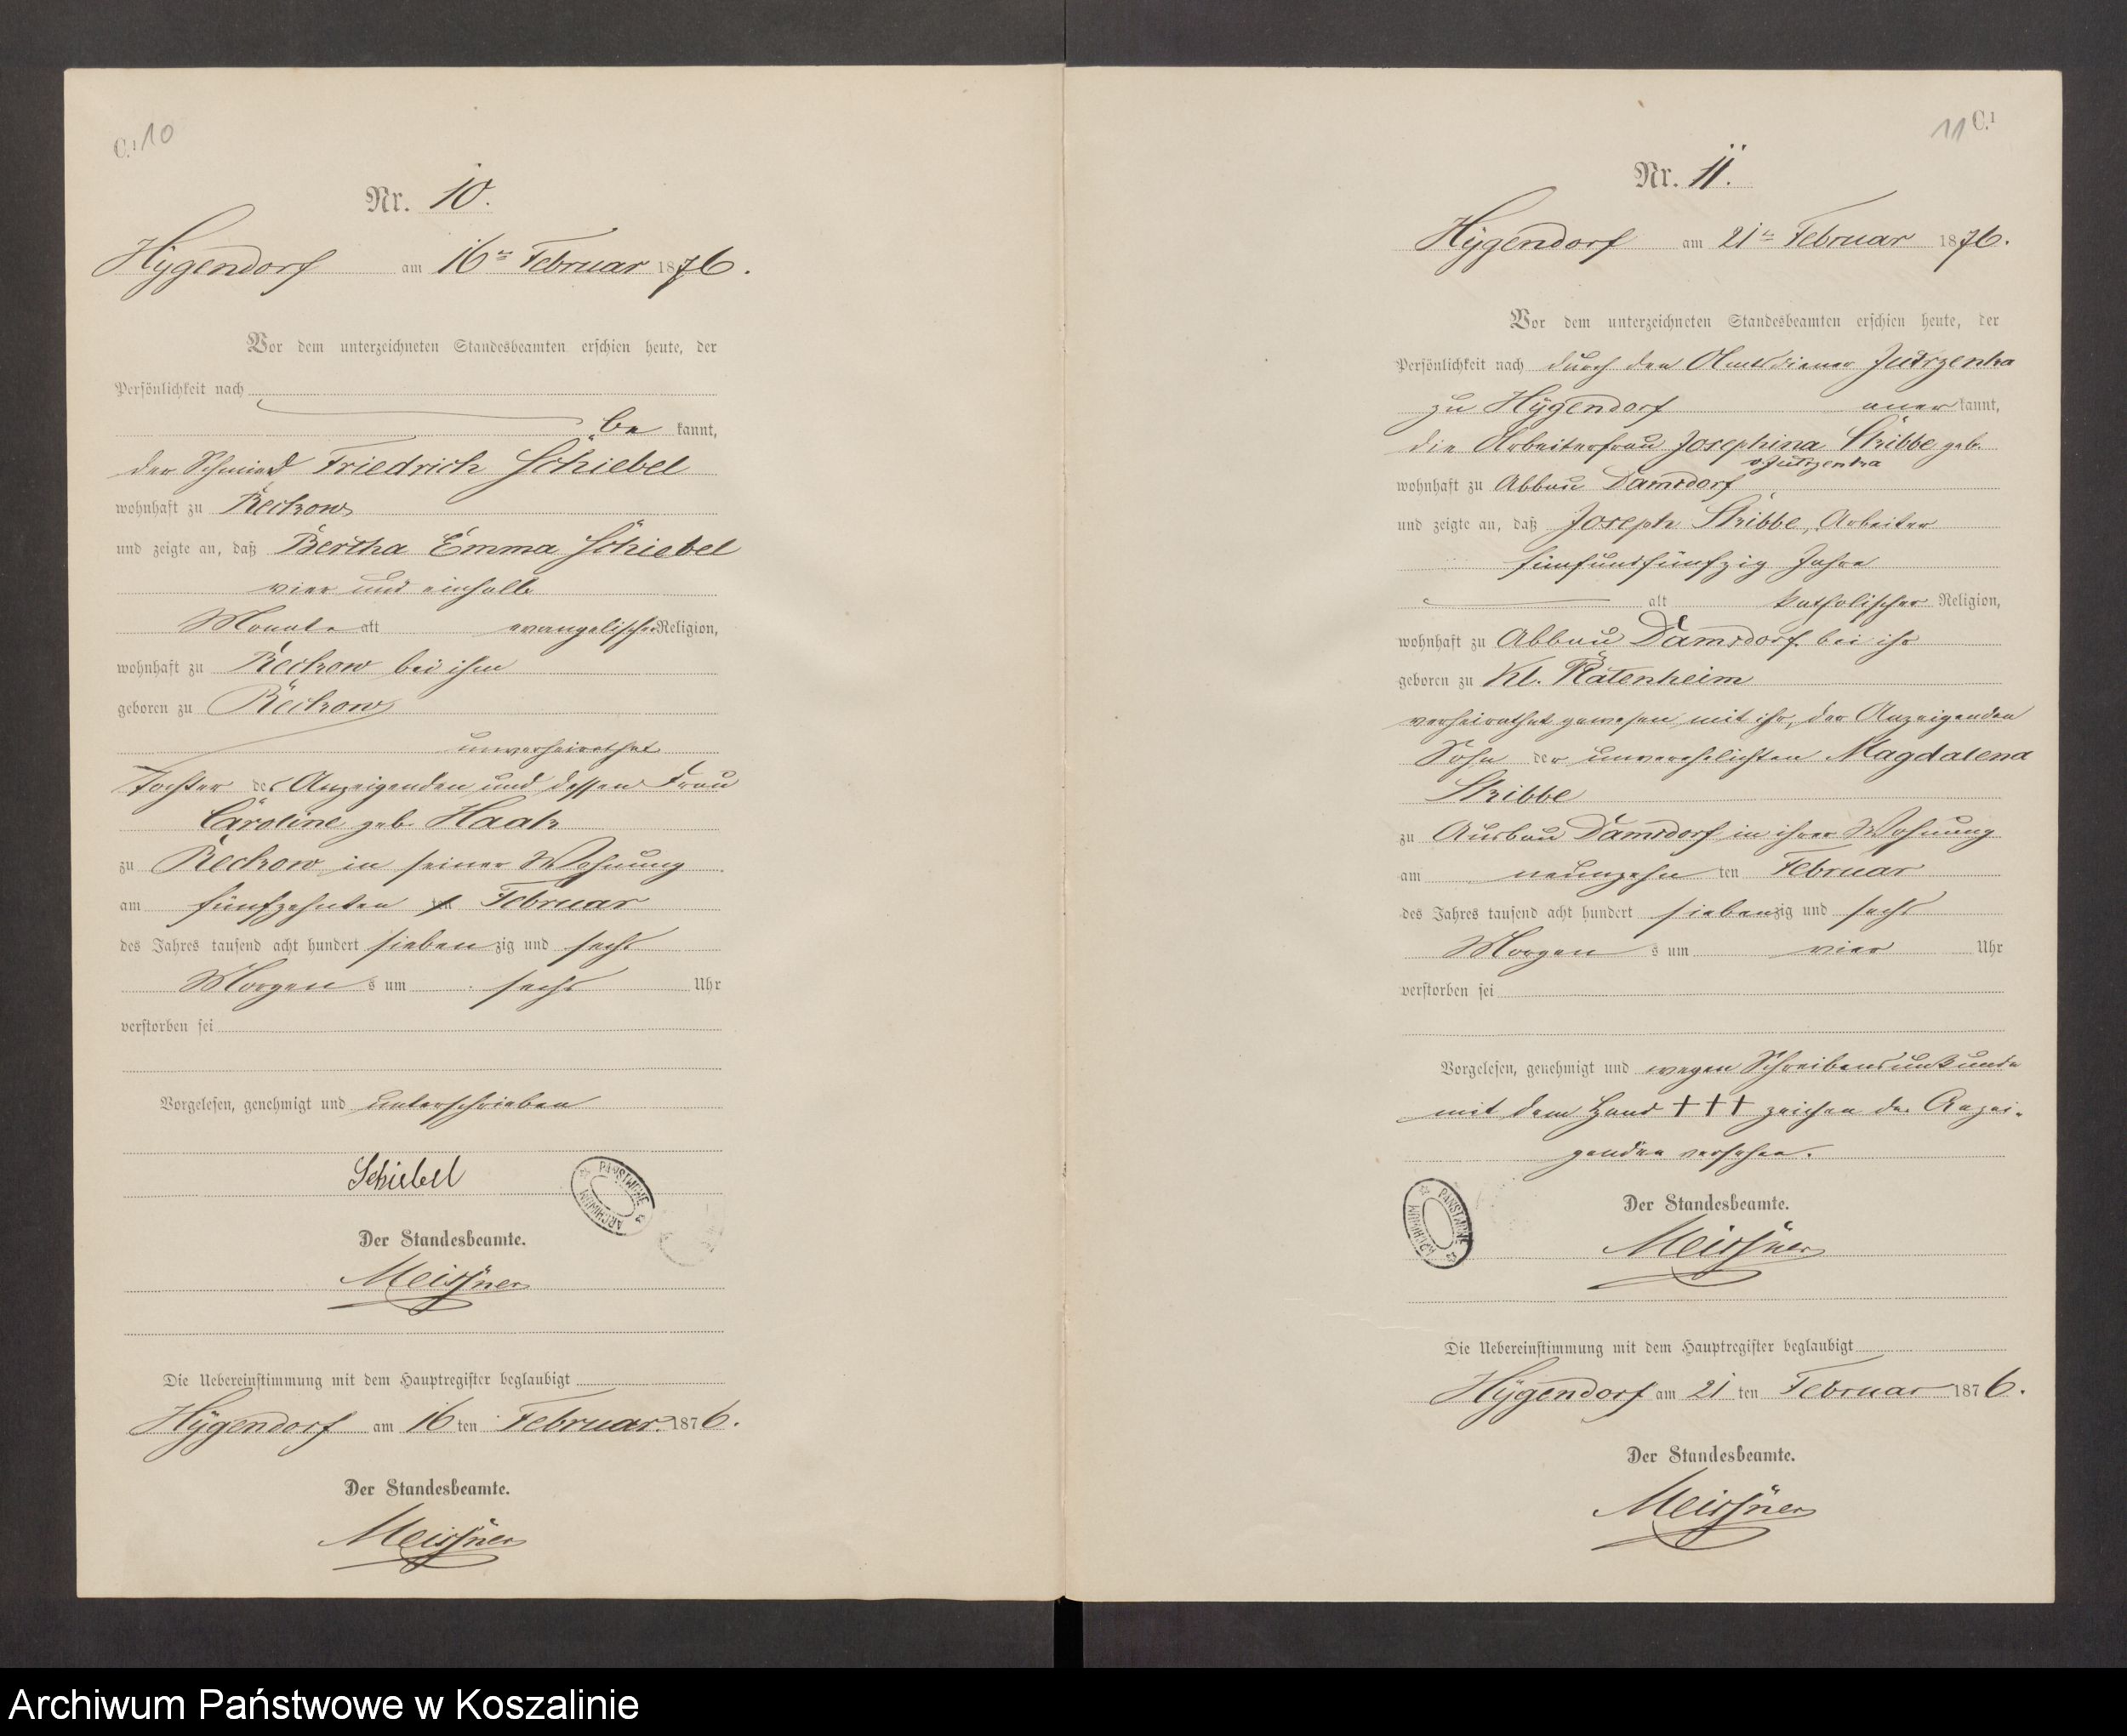 C.1 10
Nr. 10.
Hygendorf am 16ten Februar 1876.
Vor dem unterzeichneten Standesbeamten erschien heute, der
Persönlichkeit nach
be kannt,
der Schmied Friedrich Schiebel
wohnhaft zu Reckow
und zeigte an, daß Bertha Emma Schiebel
vier und einhalb
Monate alt evangelischer Religion,
wohnhaft zu Reckow bei ihm
geboren zu Reckow
unverheirathet
Tochter des Anzeigenden und dessen Frau
Caroline geb. Haak
zu Reckow in seiner Wohnung
am fünfzehnten Februar
des Jahres tausend acht hundert sieben zig und sechs
Morgen s um sechs Uhr
verstorben sei
Vorgelesen, genehmigt und unterschrieben
Schiebel
ARCHIWUM PAŃSTWOWE
Der Standesbeamte.
Meissner
Die Uebereinstimmung mit dem Hauptregister beglaubigt
Hygendorf am 16 ten Februar. 1876.
Der Standesbeamte.
Meissner
11 C.1
Nr. 11.
Hygendorf am 21ten Februar 1876.
Vor dem unterzeichneten Standesbeamten erschien heute, der
Persönlichkeit nach durch den Amtsdiener Jutrzenka
zu Hygendorf aner kannt,
die Arbeiterfrau Josephina Skibbe geb.
v Jutrzenka
wohnhaft zu Abbau Damsdorf
und zeigte an, daß Joseph Skibbe, Arbeiter
fünfundfünfzig Jahre
alt katholischer Religion,
wohnhaft zu Abbau Damsdorf bei ihr
geboren zu Kl. Platenheim
verheirathet gewesen mit ihr, der Anzeigenden
Sohn der unverehelichten Magdalena
Skibbe
zu Ausbau Damsdorf in ihrer Wohnung
am neunzehn ten Februar
des Jahres tausend acht hundert siebenzig und sechs
Morgen s um vier Uhr
verstorben sei
Vorgelesen, genehmigt und wegen Schreibensunkunde
mit dem Hand +++ zeichen der Anzei-
genden versehen.
ARCHIWUM PAŃSTWOWE
Der Standesbeamte.
Meissner
Die Uebereinstimmung mit dem Hauptregister beglaubigt
Hygendorf am 21 ten Februar 1876.
Der Standesbeamte.
Meissner
Archiwum Państwowe w Koszalinie